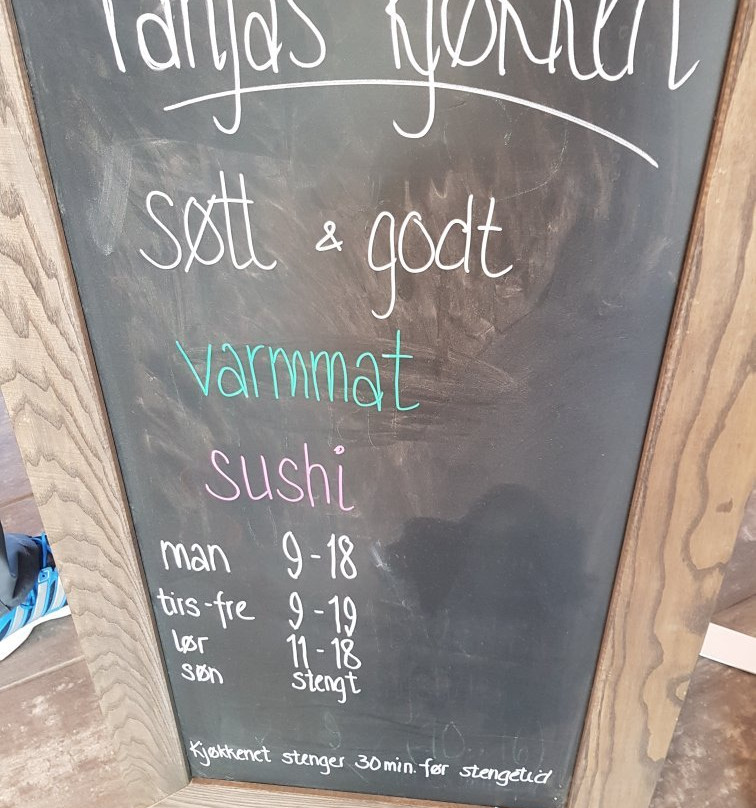 Tanjas Kjøkken
søtt & godt
varmmat
sushi
man 9-18
tirs-fre 9-19
lør 11-18
søn stengt
Kjøkkenet stenger 30min. før stengetid